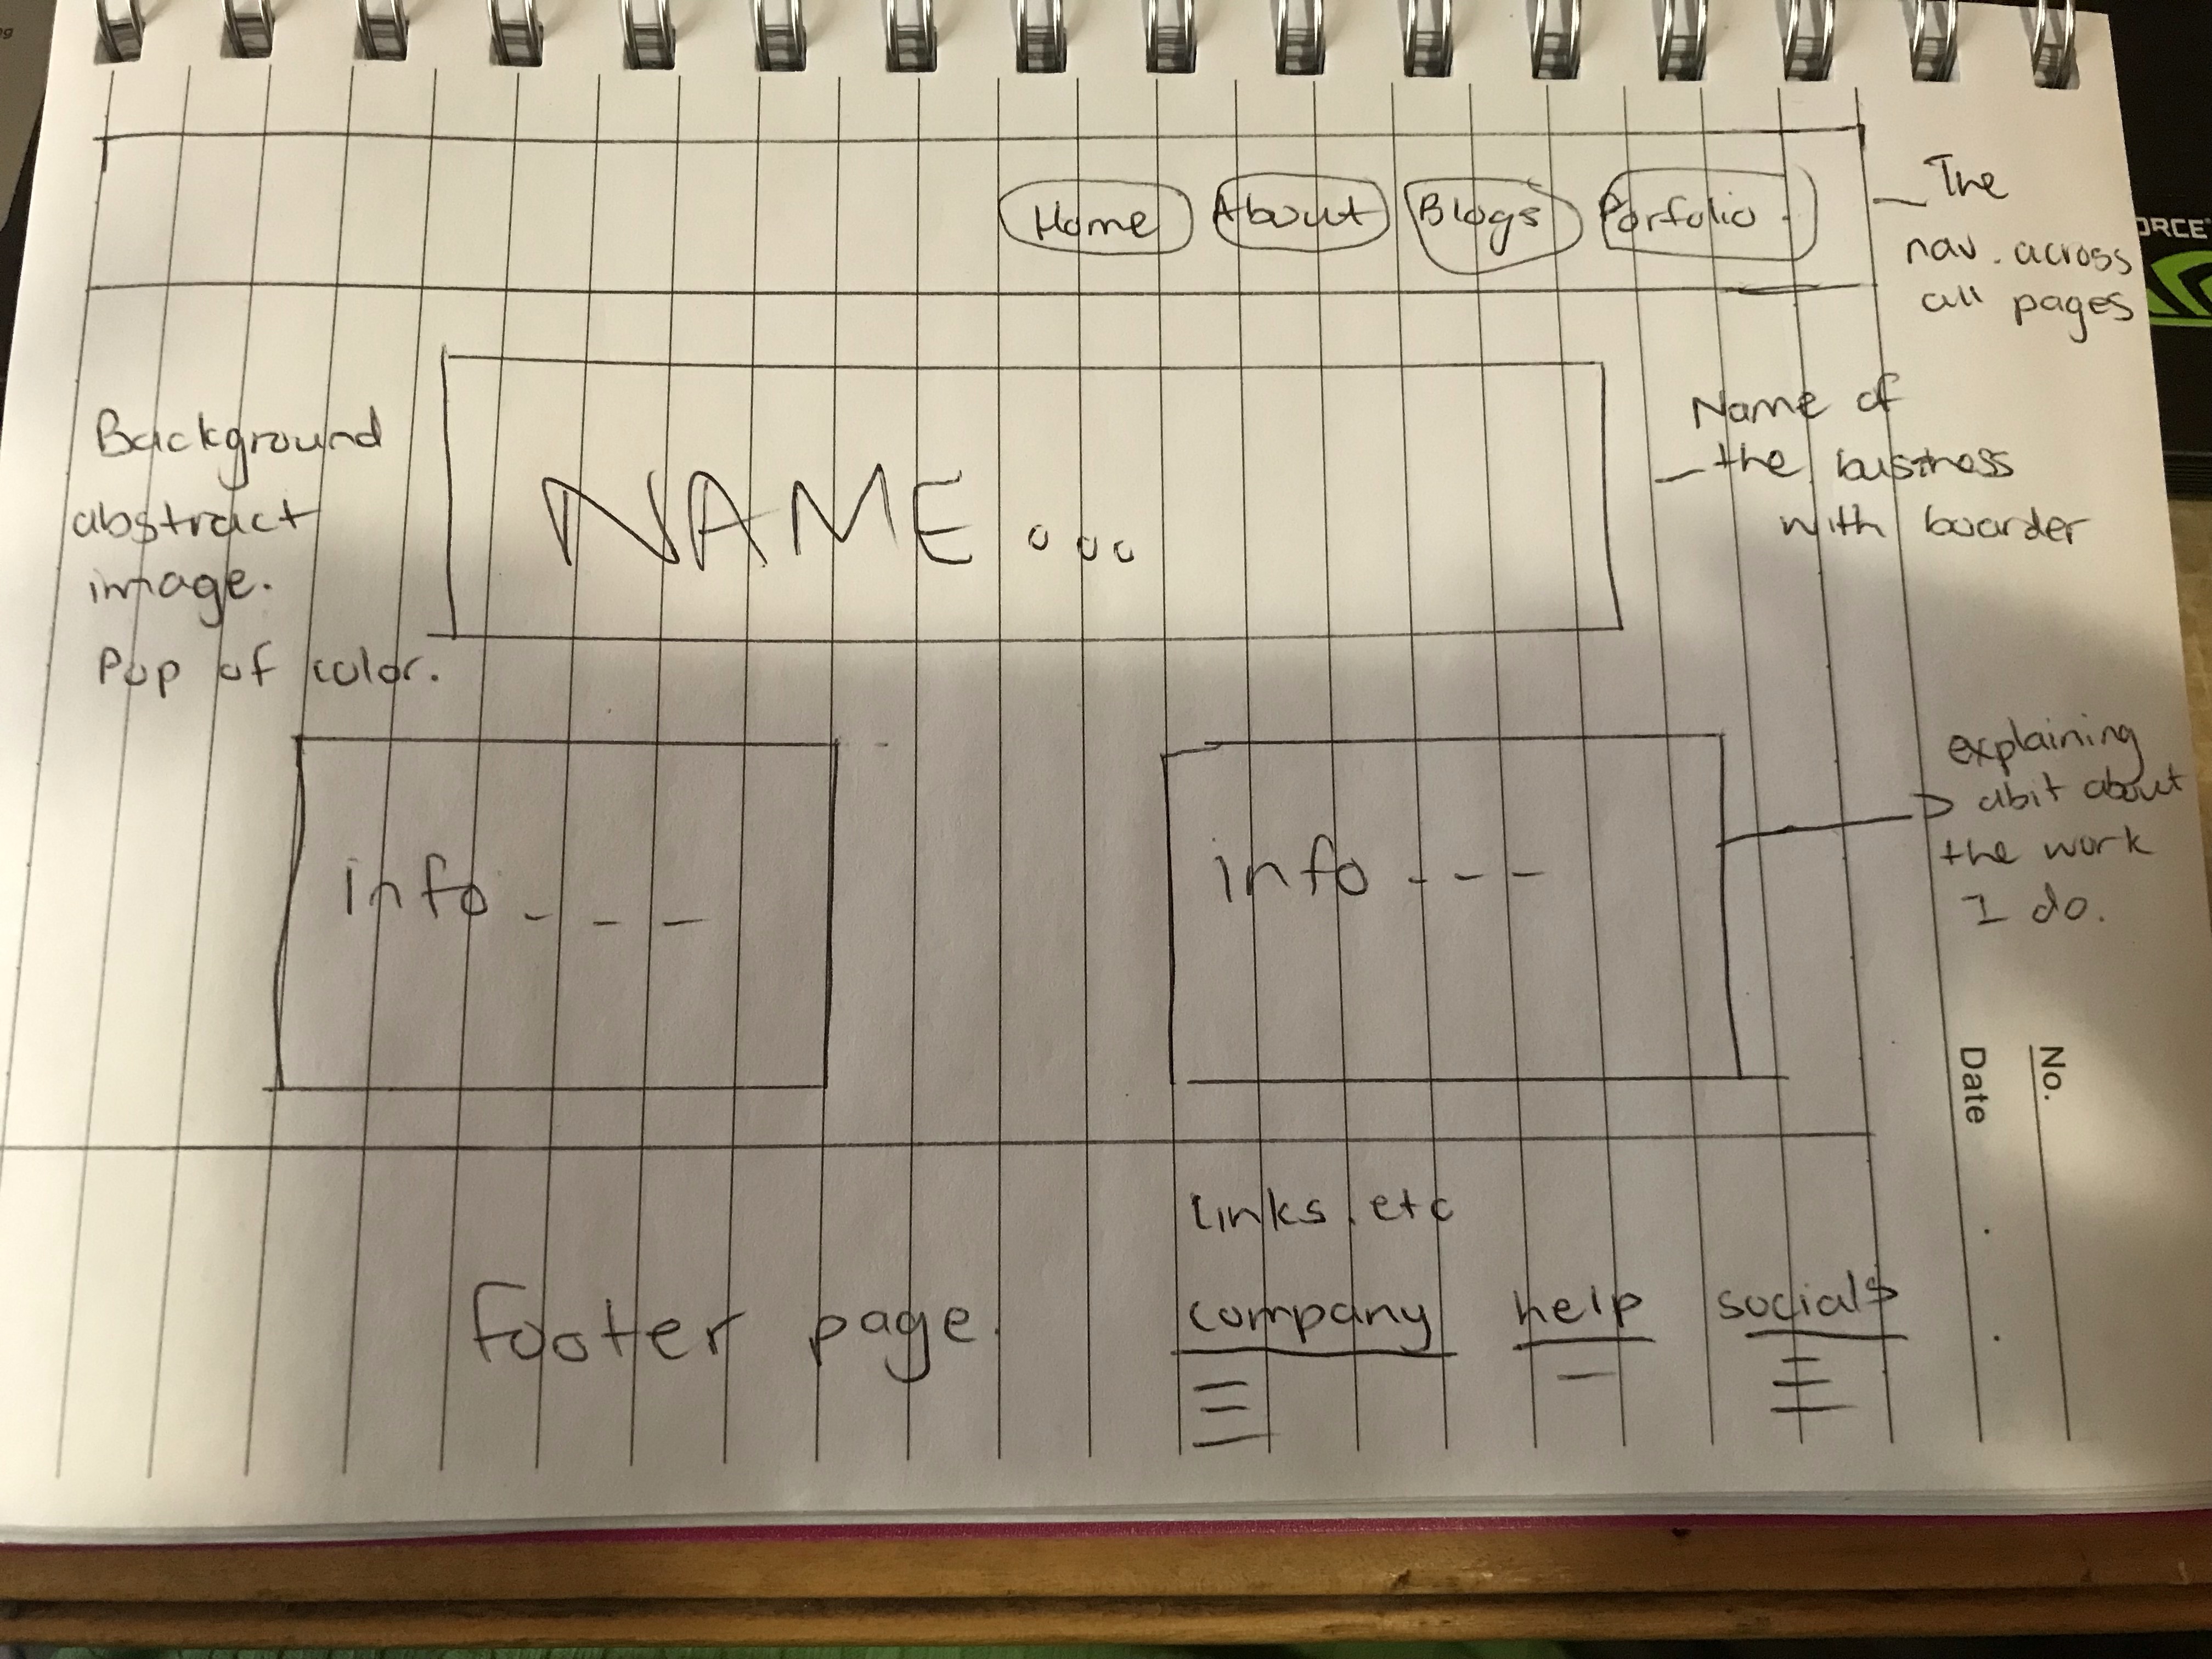 Home About Blogs Porfolio.
— The
nav. across
all pages
Background
abstract
image.
Pop of color.
NAME...
Name of
— the business
with boarder
info - - -
info - - -
explaining
abit about
the work
I do.
Footer page.
Links. etc
Company help socials
Date
No.
ORCE